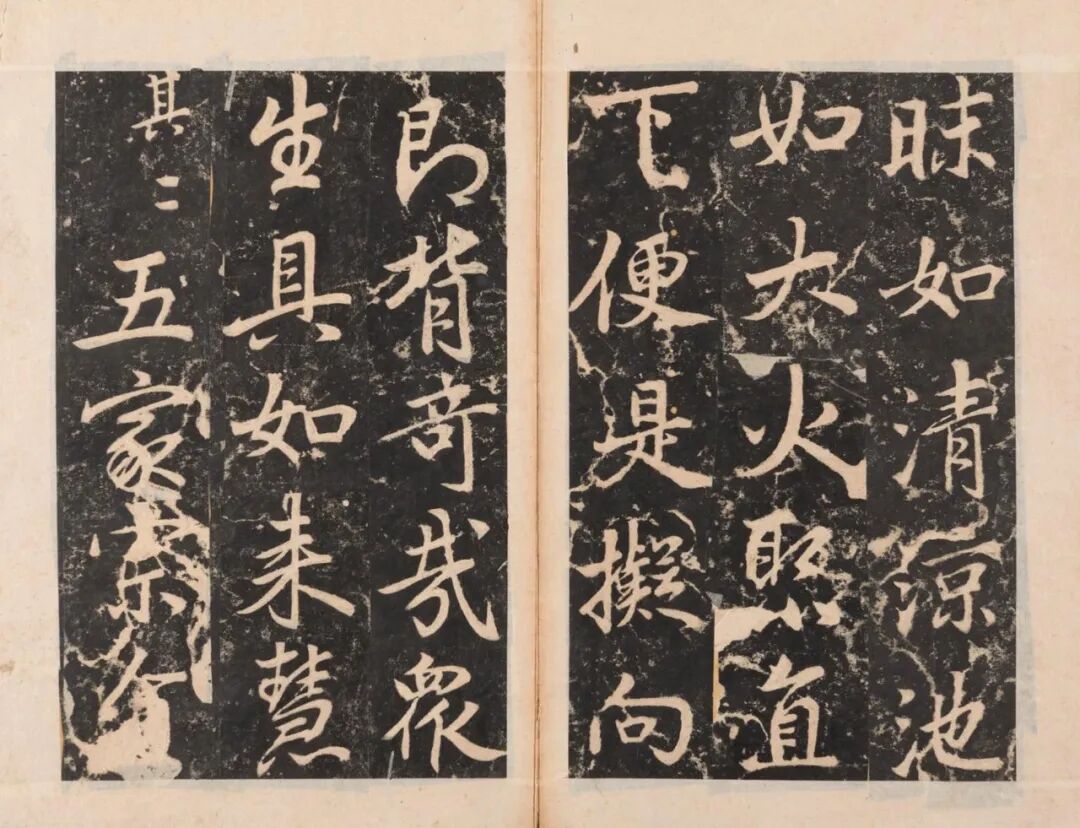 昧如清涼池
如大火聚直
下便是擬向
即背奇哉眾
生具如来慧
其二 五家宗